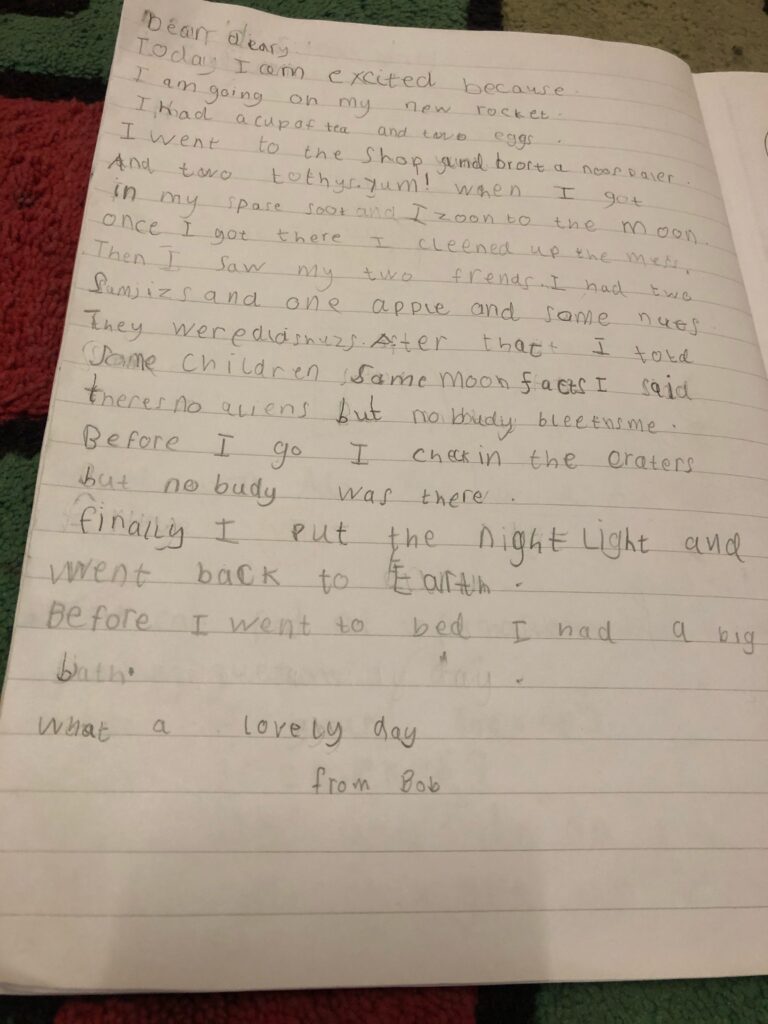 Dear deary
Today I am excited because.
I am going on my new rocket.
I had a cup of tea and two eggs.
I went to the shop and brort a noospaier.
And two tothys.yum! when I got
in my spase soot and I zoon to the moon.
once I got there I cleened up the mess.
Then I saw my two frends. I had two
Samjizs and one apple and some nuts.
They were dishuzs. After that I told
Some children Some moon facts I said
theres no aliens but no budy bleetns me.
Before I go I check in the craters
but no budy was there.
finally I put the night Light and
went back to Earth.
Before I went to bed I had a big
bath.
what a lovely day
from Bob